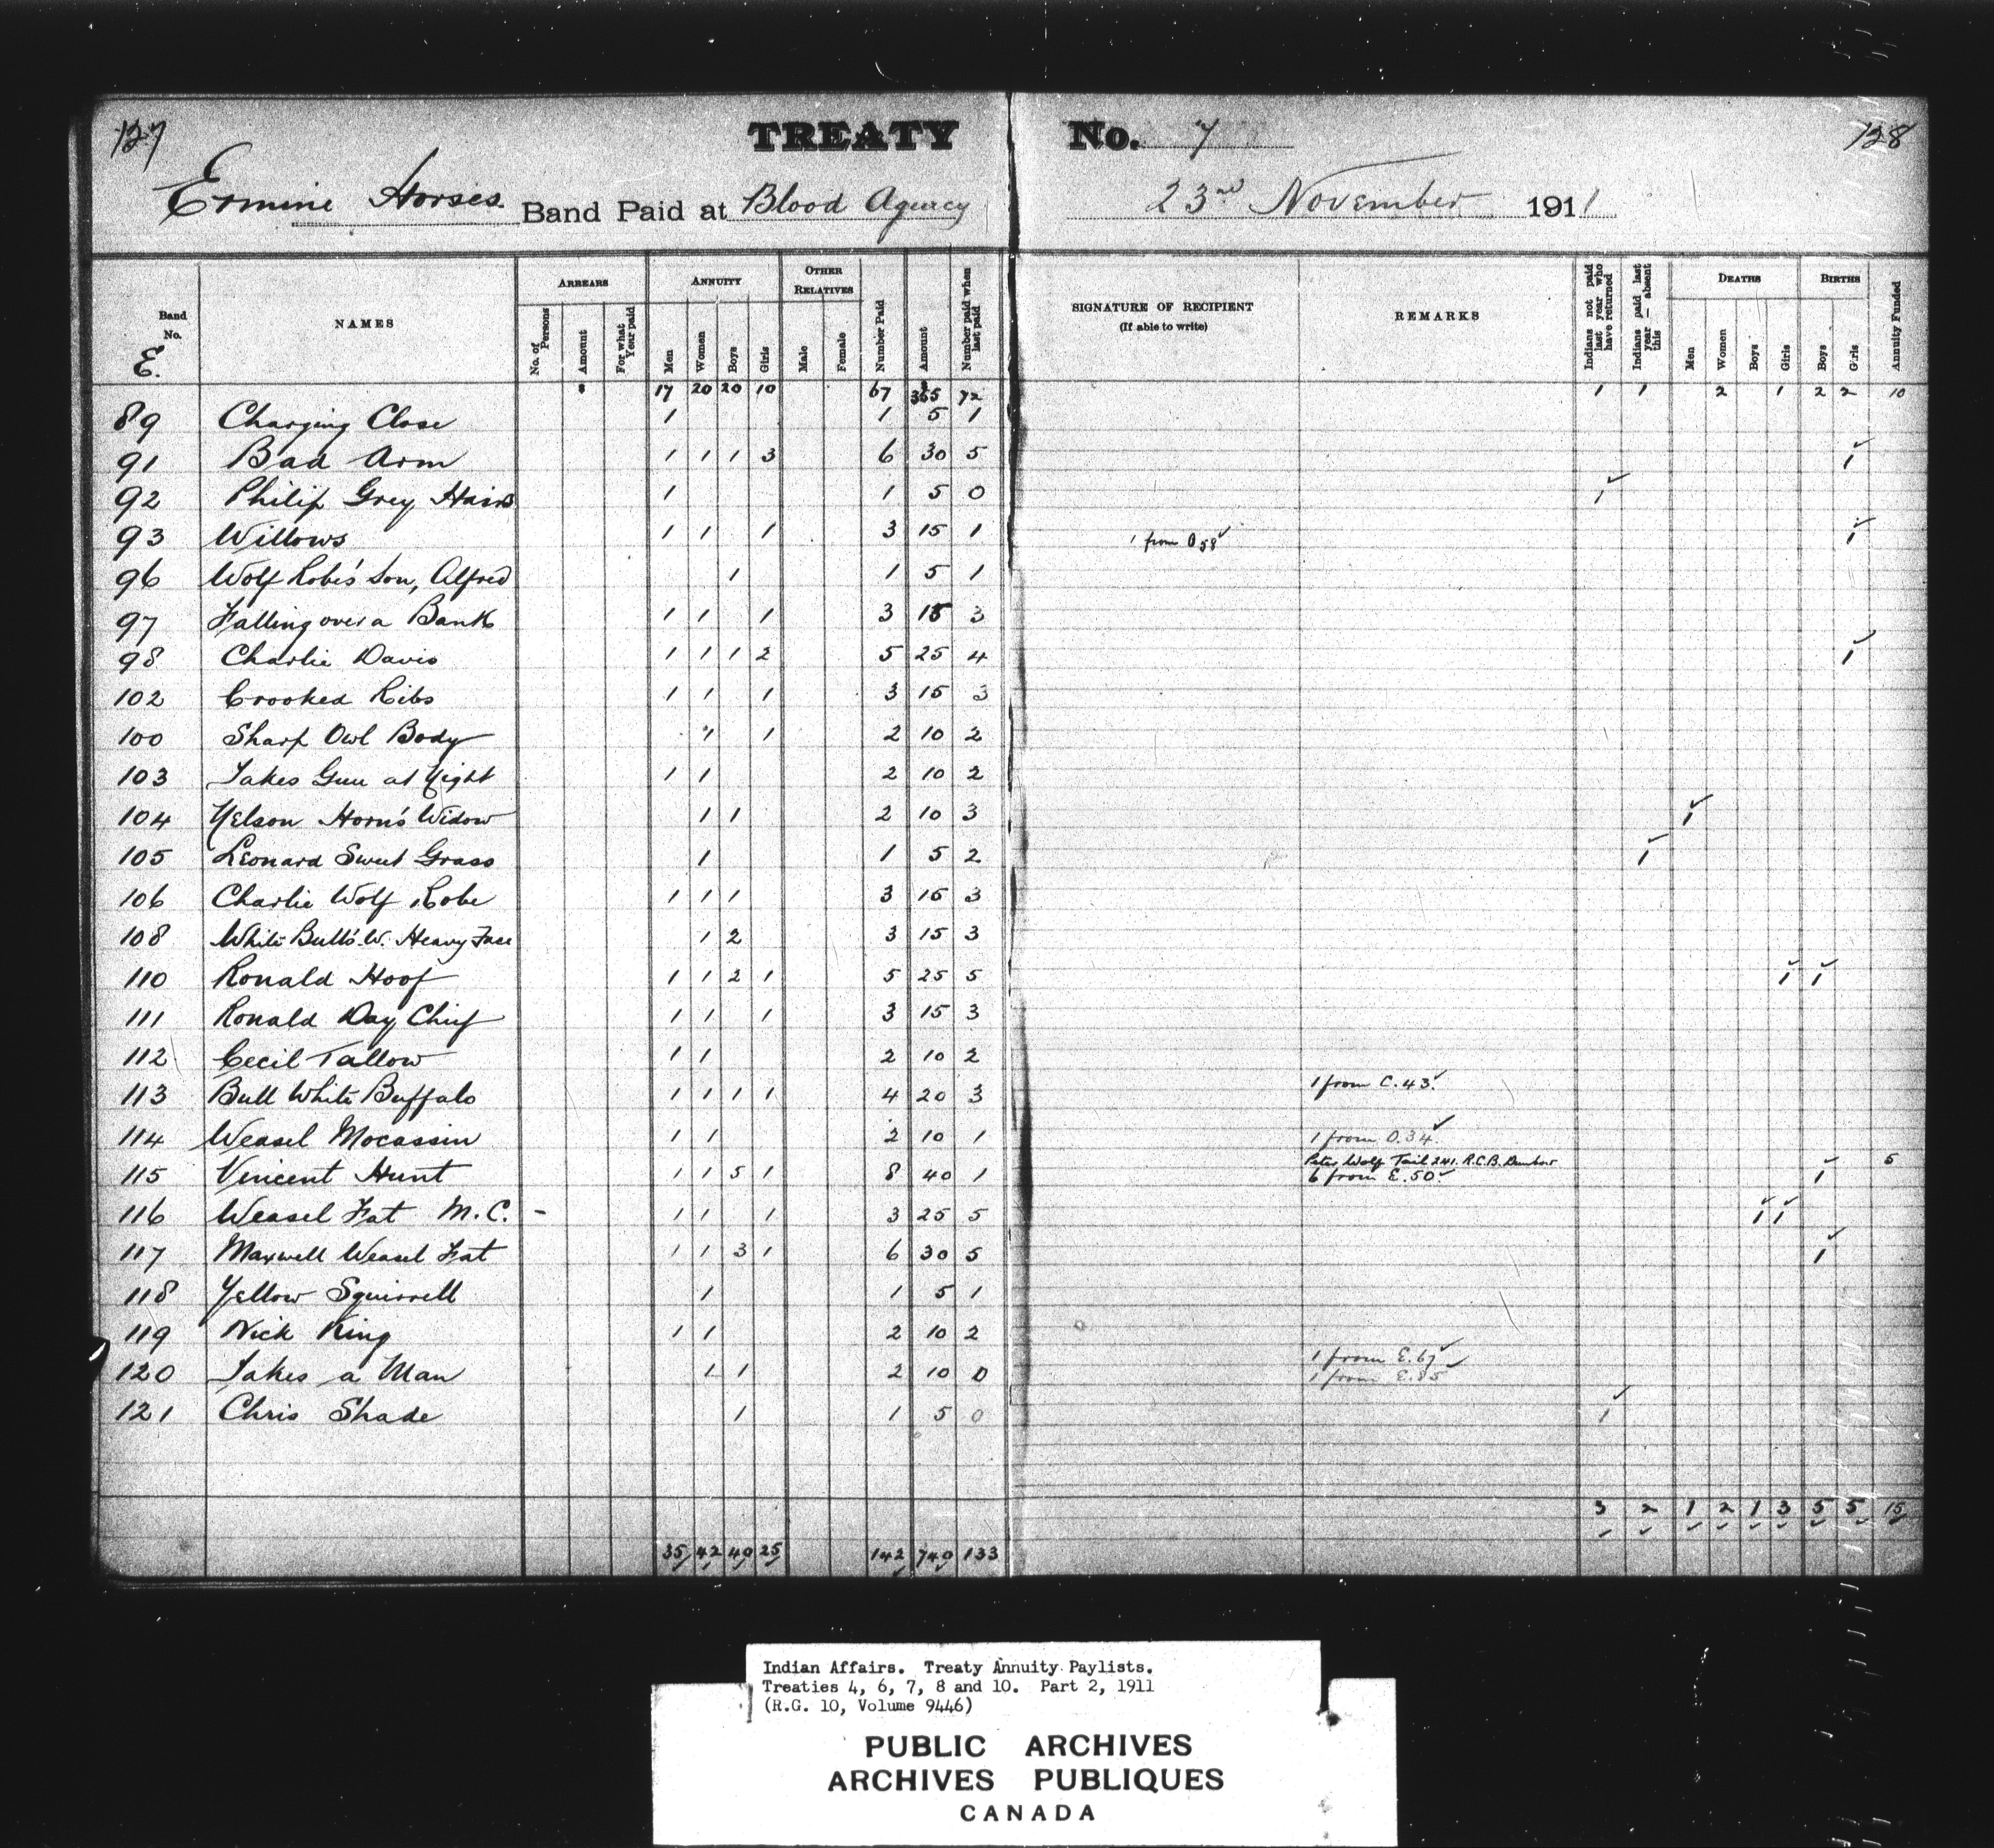 127 TREATY No. 7 128
Ermine Horses Band Paid at Blood Agency 23rd November 1911
Band No. E. NAMES ARREARS ANNUITY OTHER RELATIVES Number Paid Amount Number paid when last paid SIGNATURE OF RECIPIENT (If able to write) REMARKS Indians not paid last year who have returned Indians paid last year — absent this DEATHS BIRTHS Annuity Funded
No. of Persons Amount For what Year paid Men Women Boys Girls Male Female Men Women Boys Girls Boys Girls
$ 17 20 20 10 67 $ 365 72 1 1 2 1 2 2 10
89 Charging Close 1 1 5 1
91 Bad Arm 1 1 1 3 6 30 5 1
92 Philip Grey Hairs 1 1 5 0 1
93 Willows 1 1 1 3 15 1 1 from O 58 1
96 Wolf Robe's Son, Alfred 1 1 5 1
97 Falling over a Bank 1 1 1 3 15 3
98 Charlie Davis 1 1 1 2 5 25 4 1
102 Crooked Ribs 1 1 1 3 15 3
100 Sharp Owl Body 1 1 2 10 2
103 Takes Gun at Night 1 1 2 10 2
104 Nelson Horn's Widow 1 1 2 10 3 1
105 Leonard Sweet Grass 1 1 5 2 1
106 Charlie Wolf Robe 1 1 1 3 15 3
108 White Bull's W. Heavy Face 1 2 3 15 3
110 Ronald Hoof 1 1 2 1 5 25 5 1 1
111 Ronald Day Chief 1 1 1 3 15 3
112 Cecil Tallow 1 1 2 10 2
113 Bull White Buffalo 1 1 1 1 4 20 3 1 from C. 43.
114 Weasel Mocassin 1 1 2 10 1 1 from O. 34.
Peter Wolf Tail 241. R.C.B.
115 Vincent Hunt 1 1 5 1 8 40 1 6 from E. 50. 1 5
116 Weasel Fat M.C. - 1 1 1 3 25 5 1 1
117 Maxwell Weasel Fat 1 1 3 1 6 30 5 1
118 Yellow Squirrell 1 1 5 1
119 Nick King 1 1 2 10 2
1 from E. 67
120 Takes a Man 1 1 2 10 0 1 from E. 85
121 Chris Shade 1 1 5 0 1
3 2 1 2 1 3 5 5 15
35 42 40 25 142 740 133
Indian Affairs. Treaty Annuity Paylists.
Treaties 4, 6, 7, 8 and 10. Part 2, 1911
(R.G. 10, Volume 9446)
PUBLIC ARCHIVES
ARCHIVES PUBLIQUES
CANADA